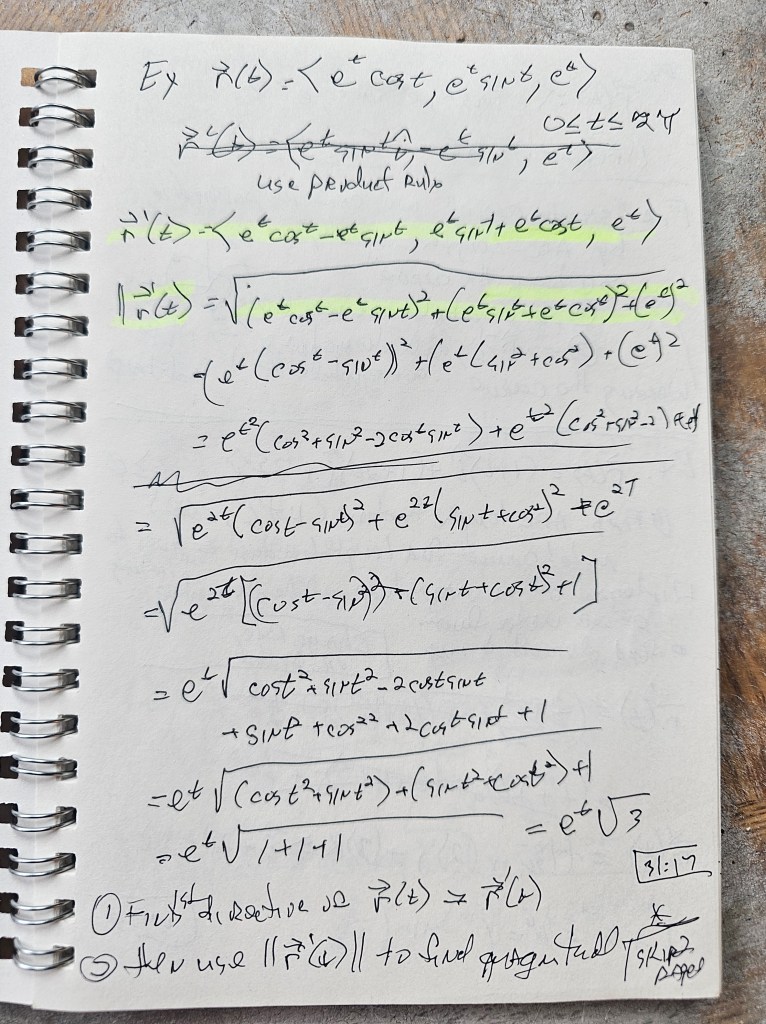 Ex r⃗(t) = ⟨e^t cost, e^t sint, e^t⟩
0≤t≤2π
r⃗'(t) = ⟨e^t sint, -e^t sint, e^t⟩
use product rule
r⃗'(t) = ⟨e^t cost - e^t sint, e^t sint + e^t cost, e^t⟩
||r⃗'(t) = √(e^t cost - e^t sint)^2 + (e^t sint + e^t cost)^2 + (e^t)^2
(e^t(cost - sint))^2 + (e^t(sin^2 + cos^2) + (e^t)^2
= e^t2(cos^2 + sin^2 - 2cost sint) + e^t2(cos^2 + sin^2 - 2)
= √e^2t(cost - sint)^2 + e^2t(sint + cost)^2 + e^2t
= √e^2t[(cost - sint)^2 + (sint + cost)^2 + 1]
= e^t √cost^2 + sint^2 - 2cost sint
+ sint^2 + cos^22 + 2cost sint + 1
= e^t √(cost^2 + sint^2) + (sint^2 + cost^2) + 1
= e^t √1+1+1 = e^t √3
31:17
① Find 1st dirative of r⃗(t) ⇒ r⃗'(t)
② then use ||r⃗'(t)|| to find magnitud
* SKIP 2 pages